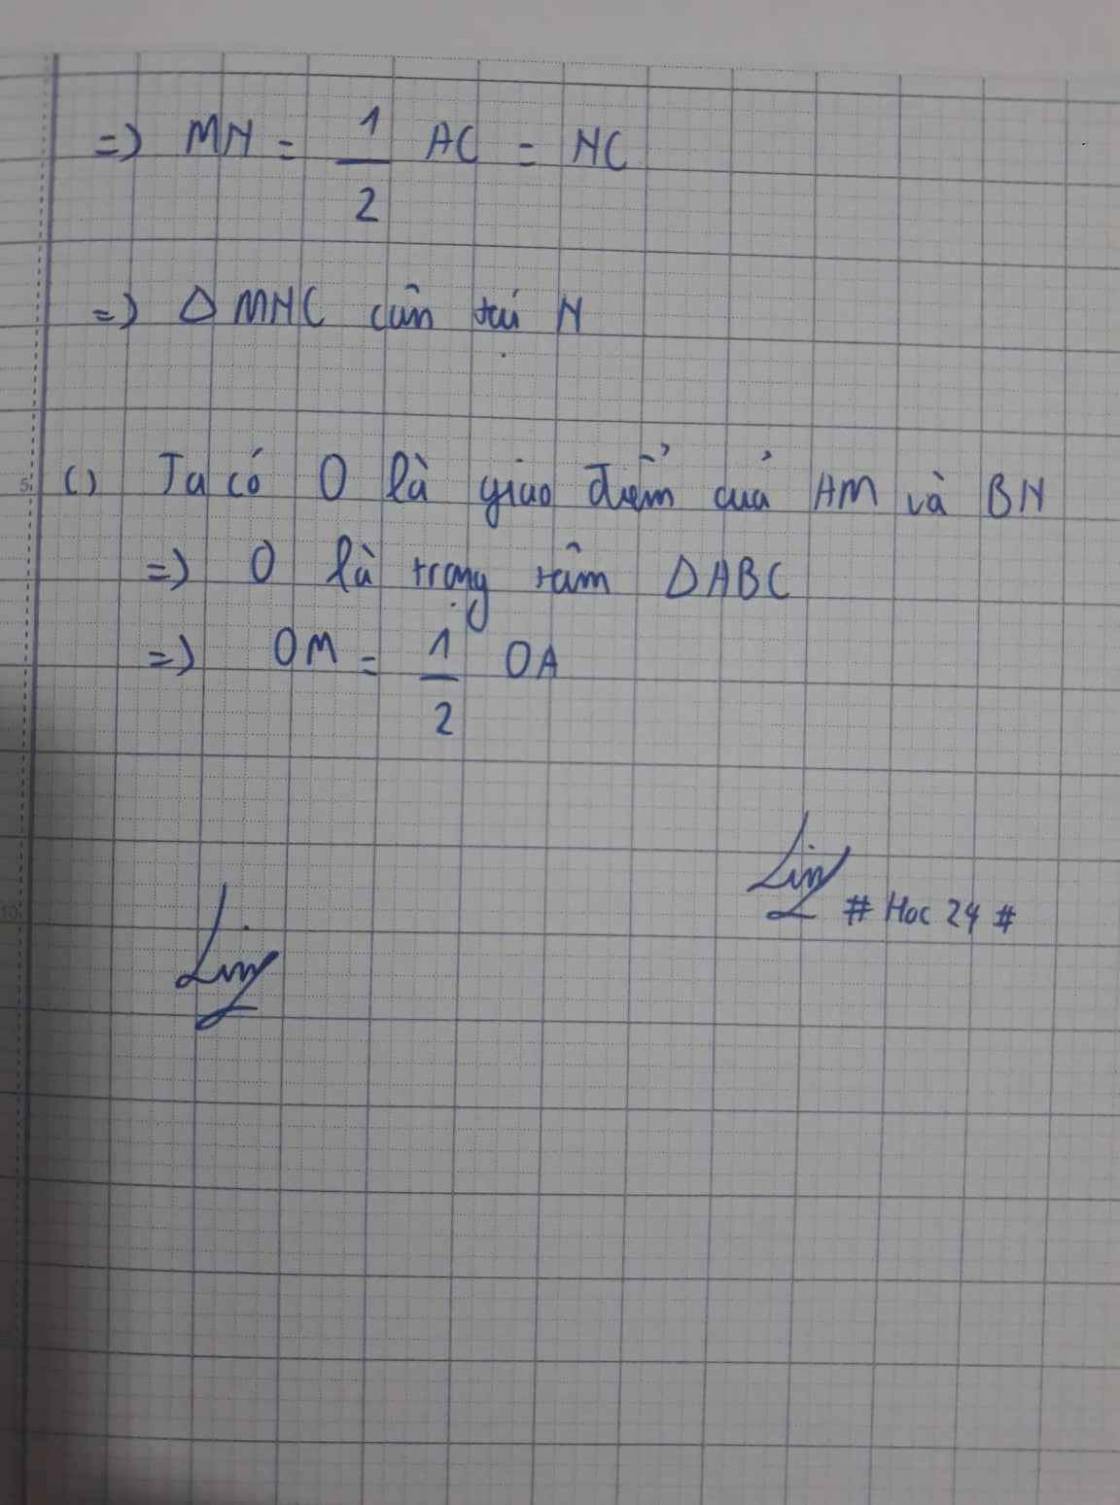 => MN = 1/2 AC = NC
=> Δ MNC cân tại N
c) Ta có O là giao điểm của AM và BN
=> O là trọng tâm ΔABC
=> OM = 1/2 OA
Lin
# Hoc 24 #
Lin